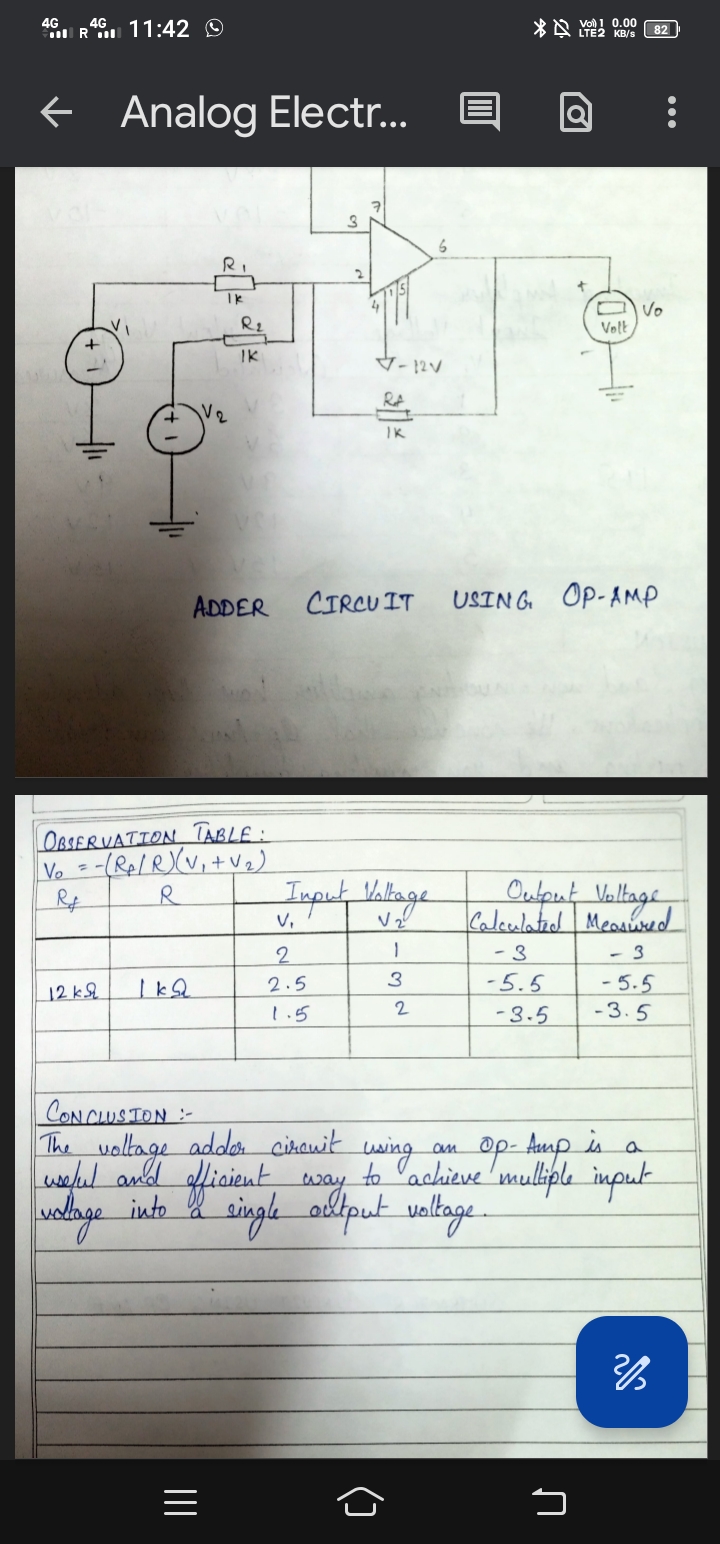 4G R 4G 11:42 Vo) 1 LTE2 0.00 KB/s 82
Analog Electr...
7
3
6
R1
2
1K
4 1 5
+
V1
R2
Vo
Volt
+
1K
-
-
-12V
V2
Rf
+
1K
-
ADDER CIRCUIT USING OP-AMP
OBSERVATION TABLE :
Vo = -(Rf/R)(V1+V2)
Rf R Input Voltage Output Voltage
V1 V2 Calculated Measured
2 1 -3 -3
12kΩ 1kΩ 2.5 3 -5.5 -5.5
1.5 2 -3.5 -3.5
CONCLUSION :-
The voltage adder circuit using an Op-Amp is a
useful and efficient way to achieve multiple input
voltage into a single output voltage.